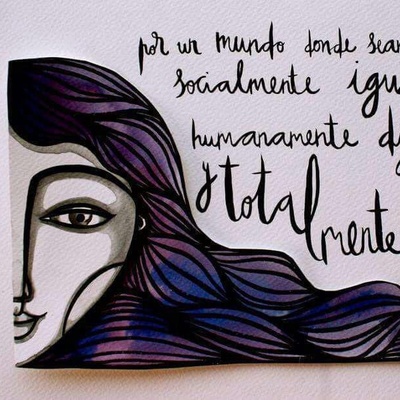 por un mundo donde sean
socialmente igu
humanamente di
y totalmente